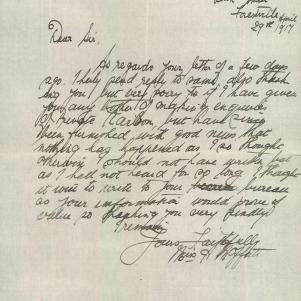 Forestville
April
29th 1917
Dear Sir.
As regards your letter of a few days
ago. I duly send reply to same, also thank
ing you, but very sorry to if I have given
you any bother of making enquiries
of Private Carlson, but have since
been furnished with good news that
nothing has happened as I so thought
otherwise I should not have written, but
as I had not heard for so long I thought
it wise to write to your bureau
as your information would prove of
value so thanking you very kindly
I remain
Yours Faithfully
Miss H Moffatt